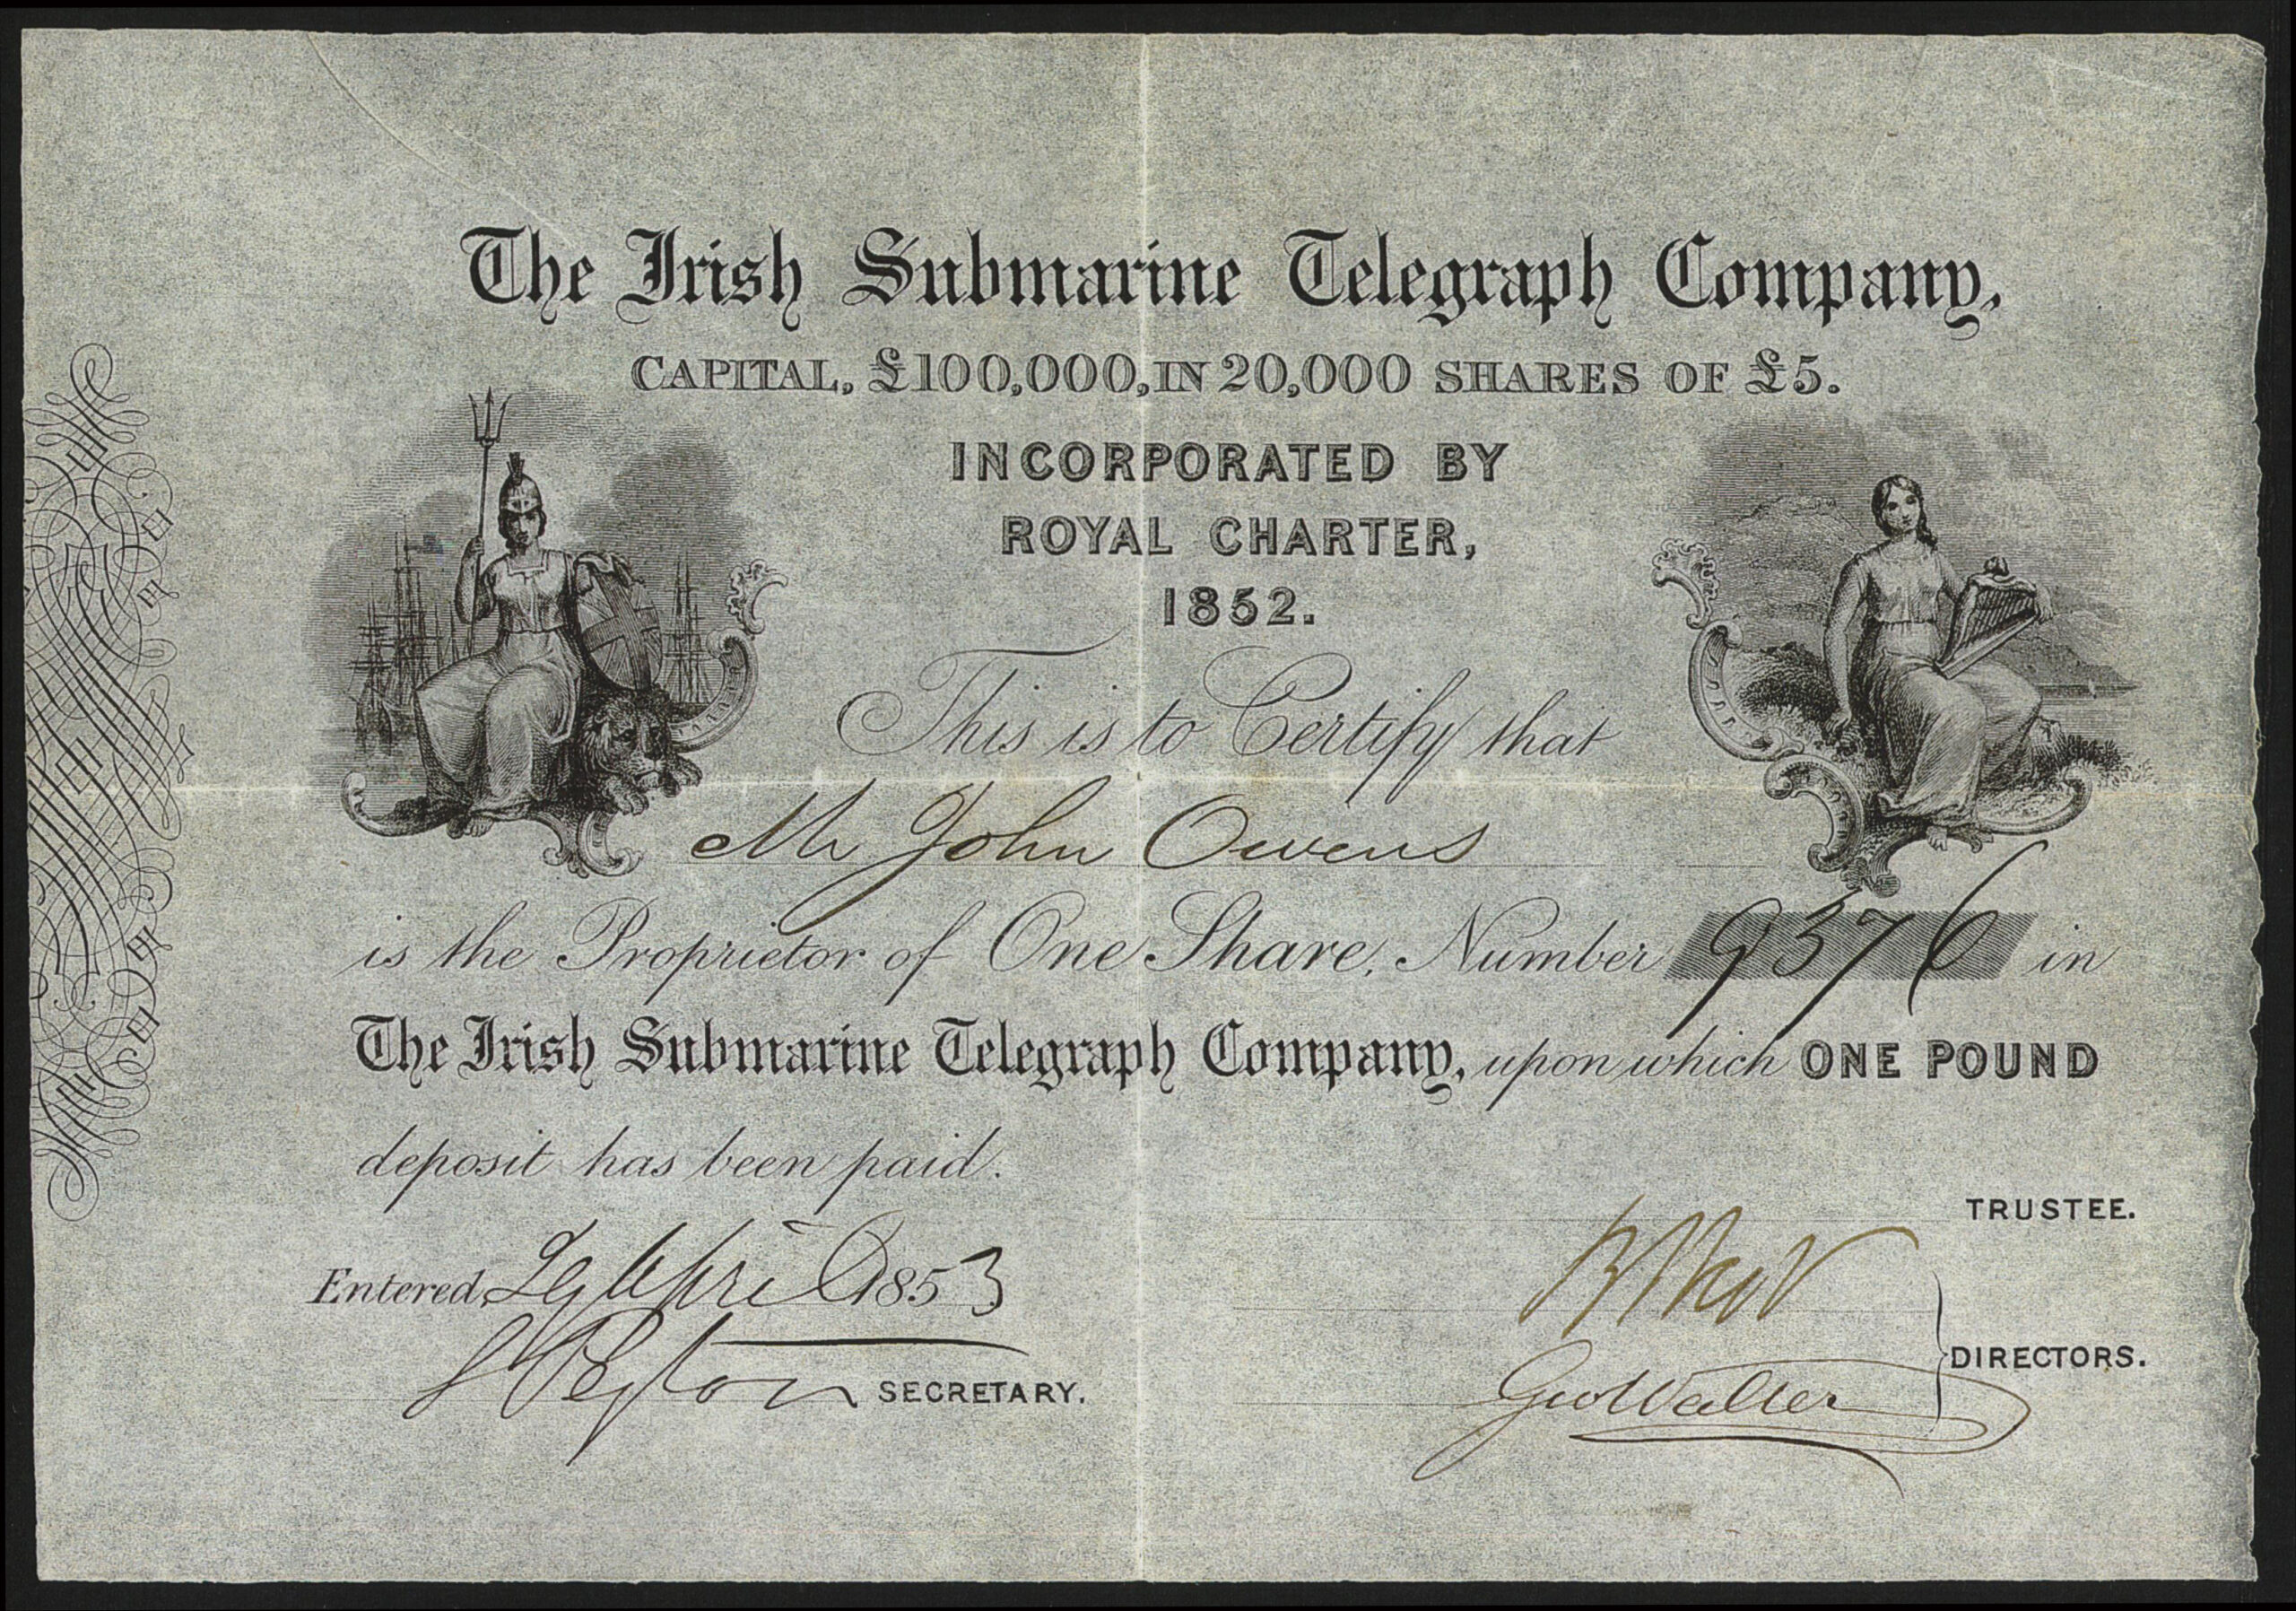 The Irish Submarine Telegraph Company,
CAPITAL, £100,000, IN 20,000 SHARES OF £5.
INCORPORATED BY
ROYAL CHARTER,
1852.
This is to Certify that
Mr John Owens
is the Proprietor of One Share, Number 9376 in
The Irish Submarine Telegraph Company, upon which ONE POUND
deposit has been paid.
TRUSTEE.
Entered, April 1853
DIRECTORS.
SECRETARY.
Geo Walter